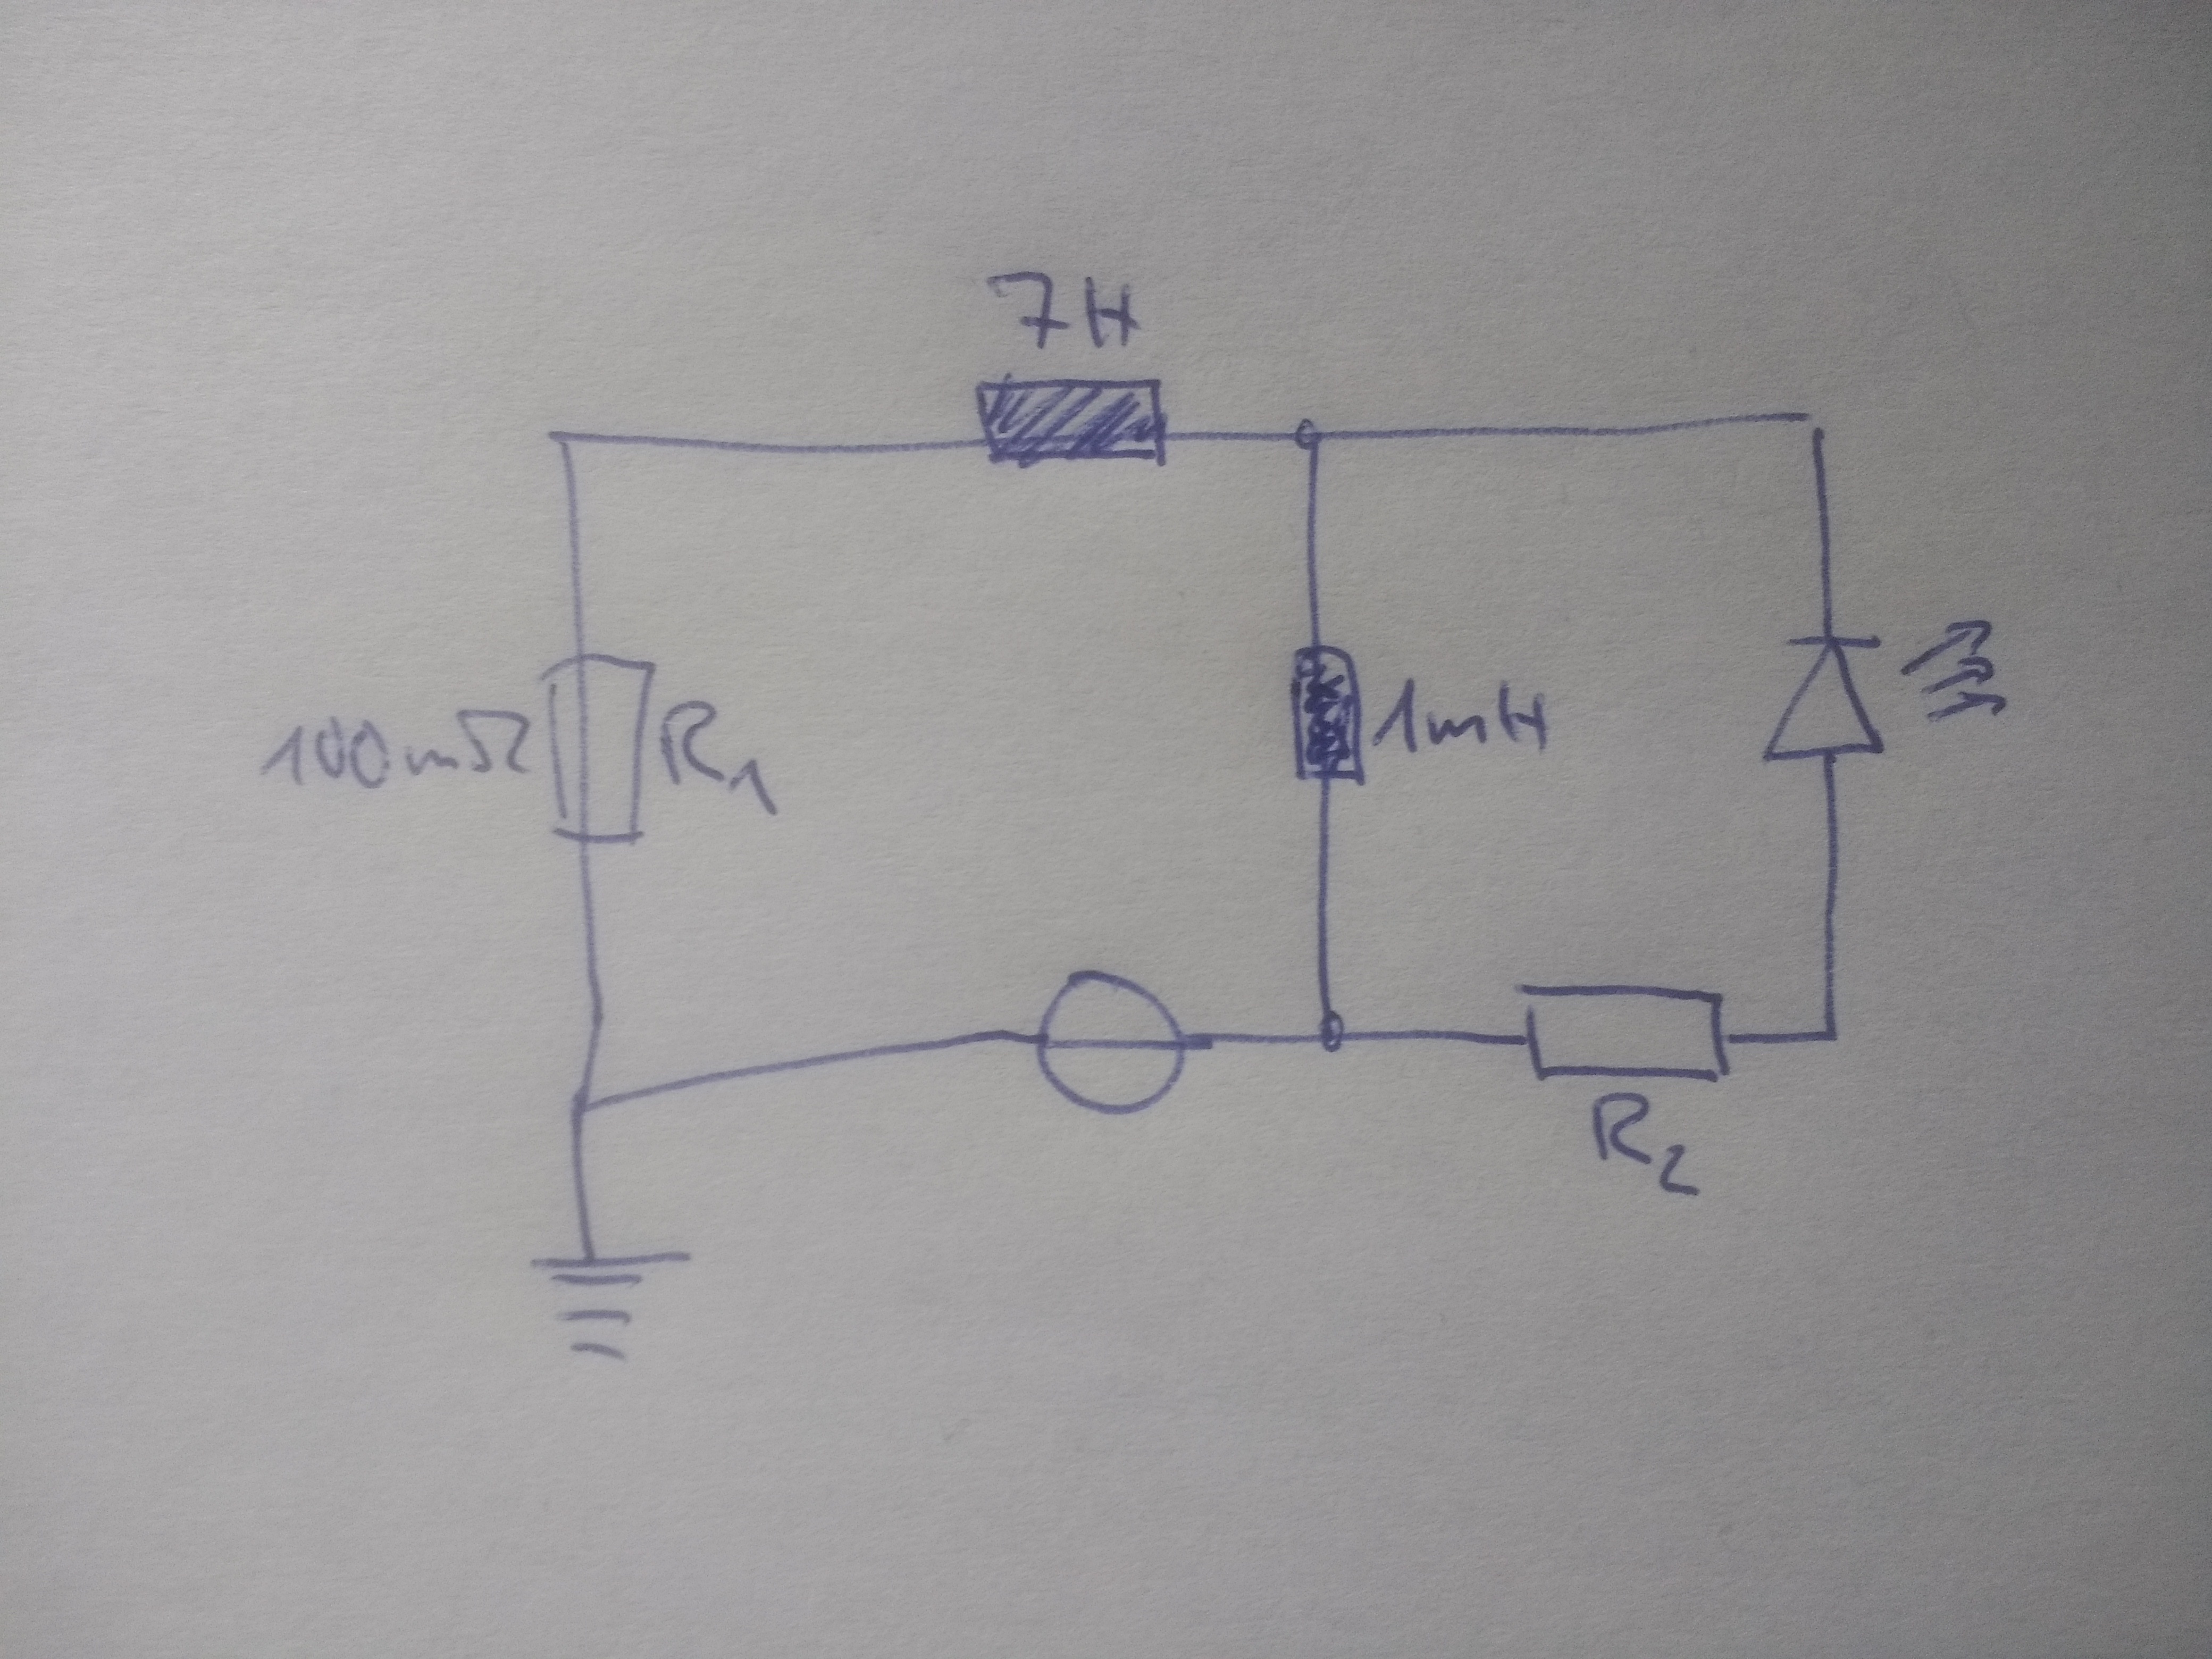 7H
100mΩ
R1
1mH
R2